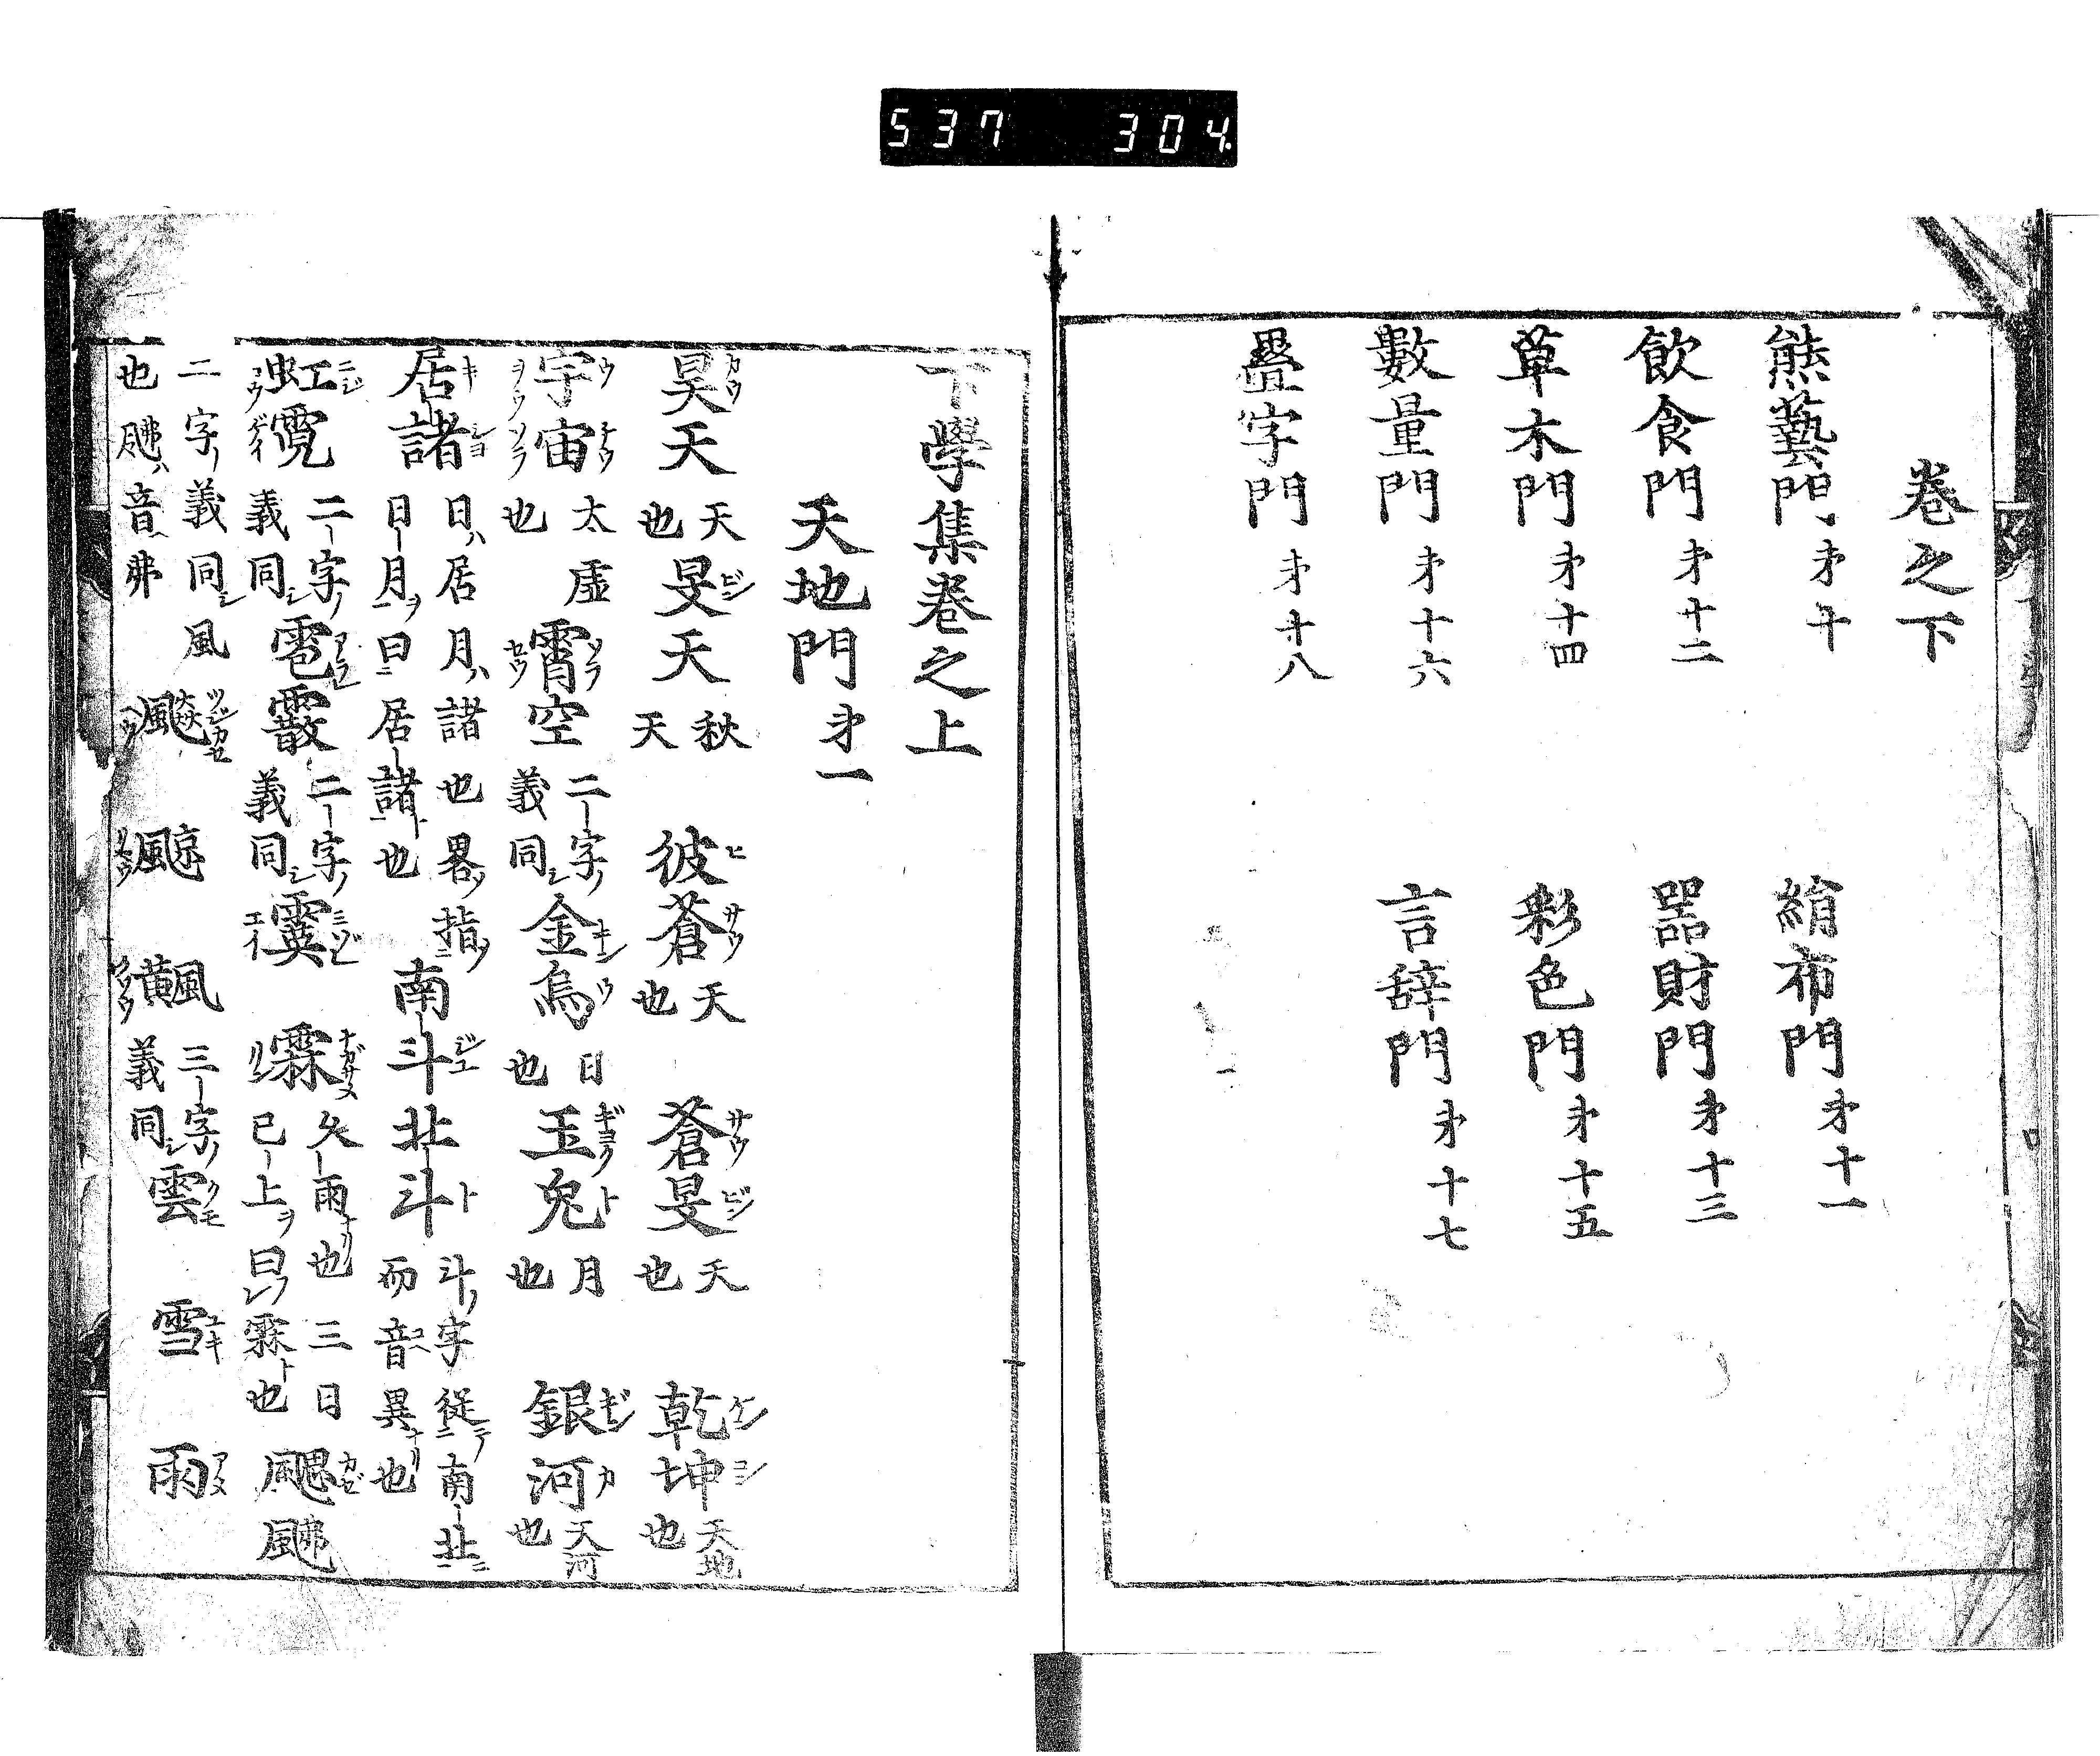 537 304
卷之下
熊藝門 才十
絹布門 才十一
飲食門 才十二
器財門 才十三
草木門 才十四
彩色門 才十五
數量門 才十六
言辞門 才十七
疊字門 才十八
下學集卷之上
天地門 才一
昊天 天也 旻天 秋天 彼蒼 天也 蒼旻 天也 乾坤 天地也
宇宙 太虛也 霄空 二字ノ義同シ 金烏 日也 玉兔 月也 銀河 天河也
居諸 日ハ居月ハ諸也畧ノ指ノ日月ヲ曰居諸也 南斗 北斗 斗ノ字從テ南北ニ而音異ナリ也
虹霓 二字ノ義同シ 雹霰 二字ノ義同シ 霙 霖 久雨ナリ也三日已上ヲ曰レ霖ト也 颸 颫
二字ノ義同シ風也颫ハ音弗 飈 飆 䬝 三字ノ義同シ 雲 雪 雨